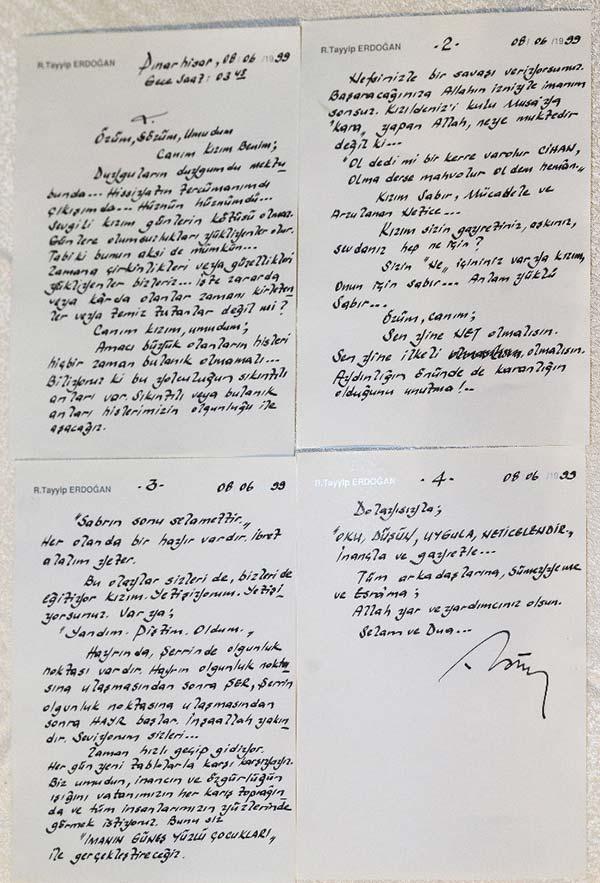 R.Tayyip ERDOĞAN
Pınarhisar, 08/06/1999
Gece Saat: 03 45
Özüm, Sözüm, Umudum
Canım Kızım Benim;
Duyguların duygumdu mektu
bunda... Hissiyatın tercümanımdı
çıkışımda... Hüznün hüznümdü...
Sevgili kızım günlerin kötüsü olmaz.
Günlere olumsuzlukları yükliyenler olur.
Tabi ki bunun aksi de mümkün...
Zamana çirkinlikleri veya güzellikleri
yükliyenler bizleriz... İşte zararda
veya kârda olanlar zamanı kirleten-
ler veya temiz tutanlar değil mi?
Canım kızım, umudum;
Amacı büyük olanların hisleri
hiçbir zaman bulanık olmamalı...
Biliyoruz ki bu yolculuğun sıkıntılı
anları var. Sıkıntılı veya bulanık
anları hislerimizin olgunluğu ile
aşacağız.
R.Tayyip ERDOĞAN -2- 08/06/1999
Nefsinizle bir savaşı veriyorsunuz.
Başaracağınıza Allahın izniyle imanım
sonsuz. Kızıldeniz'i kulu Musa'ya
"kara" yapan Allah, neye muktedir
değil ki...
"Ol dedi mi bir kerre varolur CİHAN,
Olma derse mahvolur ol dem hemân"
Kızım Sabır, Mücadele ve
Arzulanan Netice...
Kızım sizin gayretiniz, aşkınız,
sevdanız hep ne için?
Sizin "Ne" içininiz varya kızım,
Onun için sabır... Anlam yüklü
Sabır...
Özüm, canım;
Sen yine NET olmalısın.
Sen yine ilkeli olmalısın.
Aydınlığın önünde de karanlığın
olduğunu unutma!..
R.Tayyip ERDOĞAN -3- 08 06 99
"Sabrın sonu selamettir"
Her olanda bir hayır vardır. İbret
alalım yeter.
Bu olaylar sizleri de, bizleri de
eğitiyor kızım. Yetişiyorum. Yetişi
yorsunuz. Var ya;
"Yandım. Piştim. Oldum."
Hayrında, Şerrinde olgunluk
noktası vardır. Hayrın olgunluk nokta
sına ulaşmasından sonra ŞER, Şerrin
olgunluk noktasına ulaşmasından
sonra HAYR başlar. İnşaallah yakın
dır. Seviyorum sizleri...
Zaman hızlı geçip gidiyor.
Her gün yeni tablolarla karşı karşıyayız.
Biz umudun, inancın ve özgürlüğün
ışığını vatanımızın her karış toprağın
da ve tüm insanlarımızın yüzlerinde
görmek istiyoruz. Bunu siz
"İMANIN GÜNEŞ YÜZLÜ ÇOCUKLARI"
ile gerçekleştireceğiz.
R.Tayyip ERDOĞAN -4- 08 06 1999
Dolayısıyla;
"OKU, DÜŞÜN, UYGULA, NETİCELENDİR"
İnançla ve gayretle...
Tüm arkadaşlarına, Sümeyyeme
ve Esrâma;
Allah yar ve yardımcınız olsun.
Selam ve Dua...